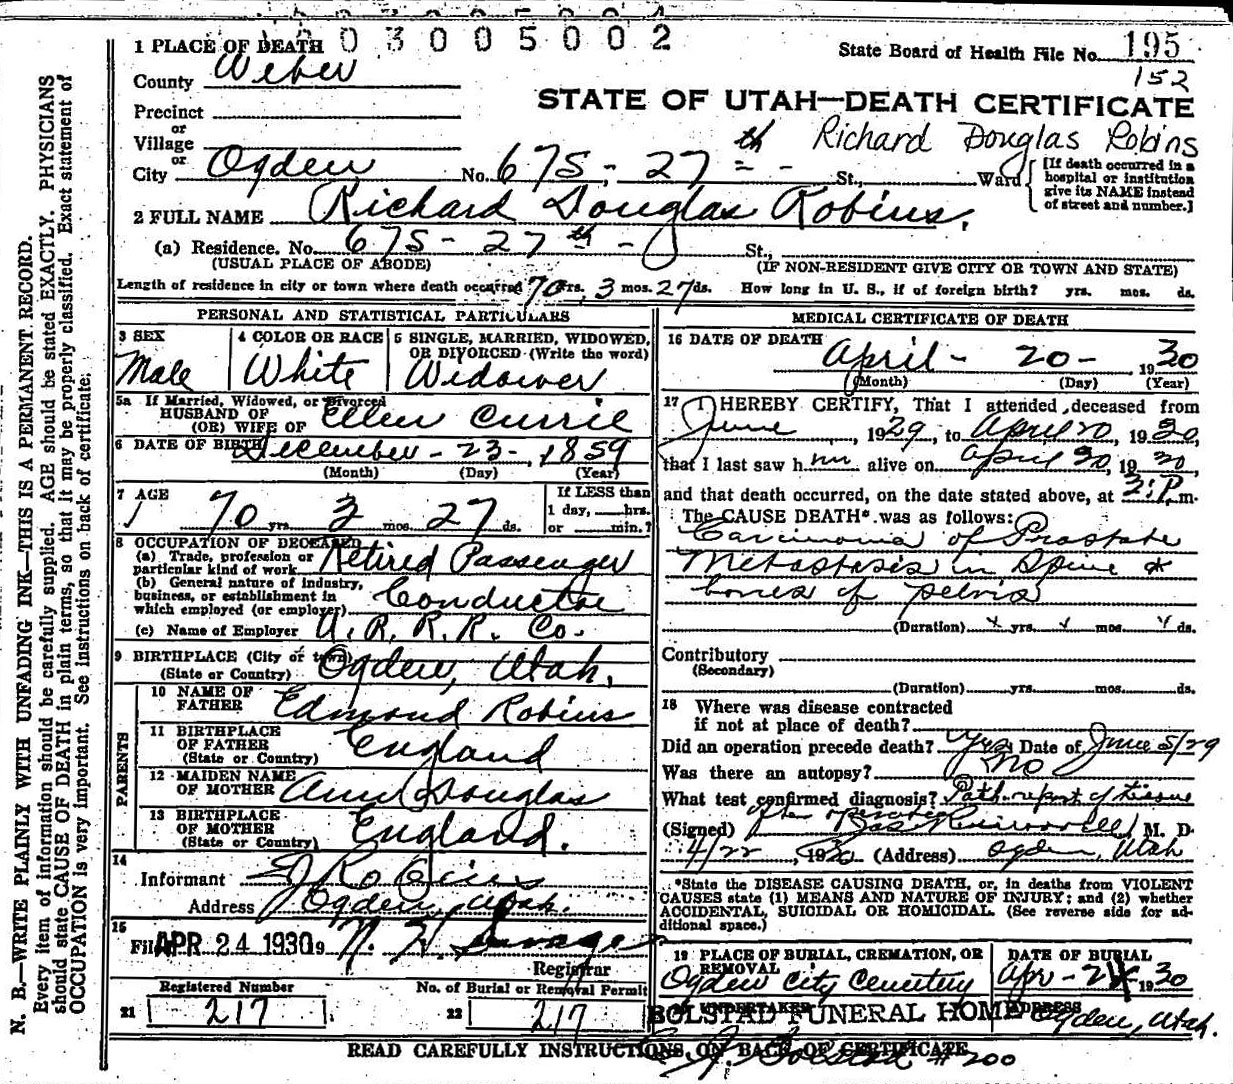 003005002
1 PLACE OF DEATH
State Board of Health File No. 195
152
County Weber
STATE OF UTAH—DEATH CERTIFICATE
Precinct
or
Village
or
Richard Douglas Robins
City Ogden No. 675 - 27th St., Ward
[If death occurred in a hospital or institution give its NAME instead of street and number.]
2 FULL NAME Richard Douglas Robins.
(a) Residence. No. 675 - 27th - St.,
(USUAL PLACE OF ABODE) (IF NON-RESIDENT GIVE CITY OR TOWN AND STATE)
Length of residence in city or town where death occurred 70 yrs. 3 mos. 27 ds. How long in U. S., if of foreign birth? yrs. mos. ds.
PERSONAL AND STATISTICAL PARTICULARS
3 SEX
Male
4 COLOR OR RACE
White
5 SINGLE, MARRIED, WIDOWED,
OR DIVORCED (Write the word)
Widower
5a If Married, Widowed, or Divorced
HUSBAND OF
(OR) WIFE OF Ellen Currie
6 DATE OF BIRTH December - 23 - , 1859
(Month) (Day) (Year)
7 AGE
70 yrs. 3 mos. 27 ds.
If LESS than
1 day, hrs.
or min.?
8 OCCUPATION OF DECEASED
(a) Trade, profession or
particular kind of work Retired Passenger
(b) General nature of industry,
business, or establishment in
which employed (or employer) Conductor
(c) Name of Employer U. P. R. R. Co.
9 BIRTHPLACE (City or town)
(State or Country) Ogden, Utah.
PARENTS
10 NAME OF
FATHER Edmond Robins
11 BIRTHPLACE
OF FATHER
(State or Country) England
12 MAIDEN NAME
OF MOTHER Ann Douglas
13 BIRTHPLACE
OF MOTHER
(State or Country) England.
14
Informant E J Robins
Address Ogden, Utah.
15
Filed APR 24 1930 19
Registrar
Registered Number
21 217
No. of Burial or Removal Permit
22 217
MEDICAL CERTIFICATE OF DEATH
16 DATE OF DEATH
April - 20 - 1930
(Month) (Day) (Year)
17 I HEREBY CERTIFY, That I attended deceased from
June, 1929, to April 20, 1930,
that I last saw him alive on April 20, 1930,
and that death occurred, on the date stated above, at 3: P. m.
The CAUSE DEATH* was as follows:
Carcinoma of Prostate
Metastasis in Spine &
bones of pelvis
(Duration) yrs. mos. ds.
Contributory
(Secondary)
(Duration) yrs. mos. ds.
18 Where was disease contracted
if not at place of death?
Did an operation precede death? Yes Date of June 5/29
Was there an autopsy? No
What test confirmed diagnosis? Path. report of tissue
after operation
(Signed) M. D.
4/22, 1930 (Address) Ogden, Utah
*State the DISEASE CAUSING DEATH, or, in deaths from VIOLENT
CAUSES state (1) MEANS AND NATURE OF INJURY; and (2) whether
ACCIDENTAL, SUICIDAL OR HOMICIDAL. (See reverse side for ad-
ditional space.)
19 PLACE OF BURIAL, CREMATION, OR
REMOVAL
Ogden City Cemetery
DATE OF BURIAL
Apr - 24 1930
UNDERTAKER
BOLSTAD FUNERAL HOME
ADDRESS
Ogden, Utah.
#200
READ CAREFULLY INSTRUCTIONS ON BACK OF CERTIFICATE
N. B.—WRITE PLAINLY WITH UNFADING INK—THIS IS A PERMANENT RECORD.
Every item of information should be carefully supplied. AGE should be stated EXACTLY. PHYSICIANS
should state CAUSE OF DEATH in plain terms, so that it may be properly classified. Exact statement of
OCCUPATION is very important. See instructions on back of certificate.